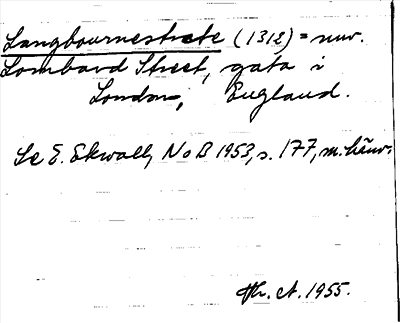 Langbournestrete (1318) = nuv.
Lombard Street, gata i
London, England.
Se E. Ekwall, NoB 1953, s. 177, m. hänv.
Th. A. 1955.